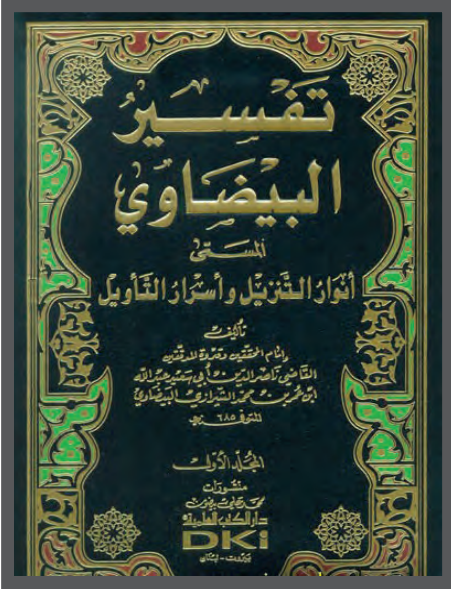 تَفسِيرُ
البيضَاوي
المسَمّى
أنوارُ التَّنزيل وأسرَارُ التَّأويل
تأليف
إمام المحققين وقدوة المدققين
القاضي ناصر الدين أبي سعيد عبد الله
ابن عمر بن محمد الشيرازي البيضاوي
المتوفى ٦٨٥
المجلد الأول
منشورات
محمد علي بيضون
دار الكتب العلمية
DKi
بيروت - لبنان